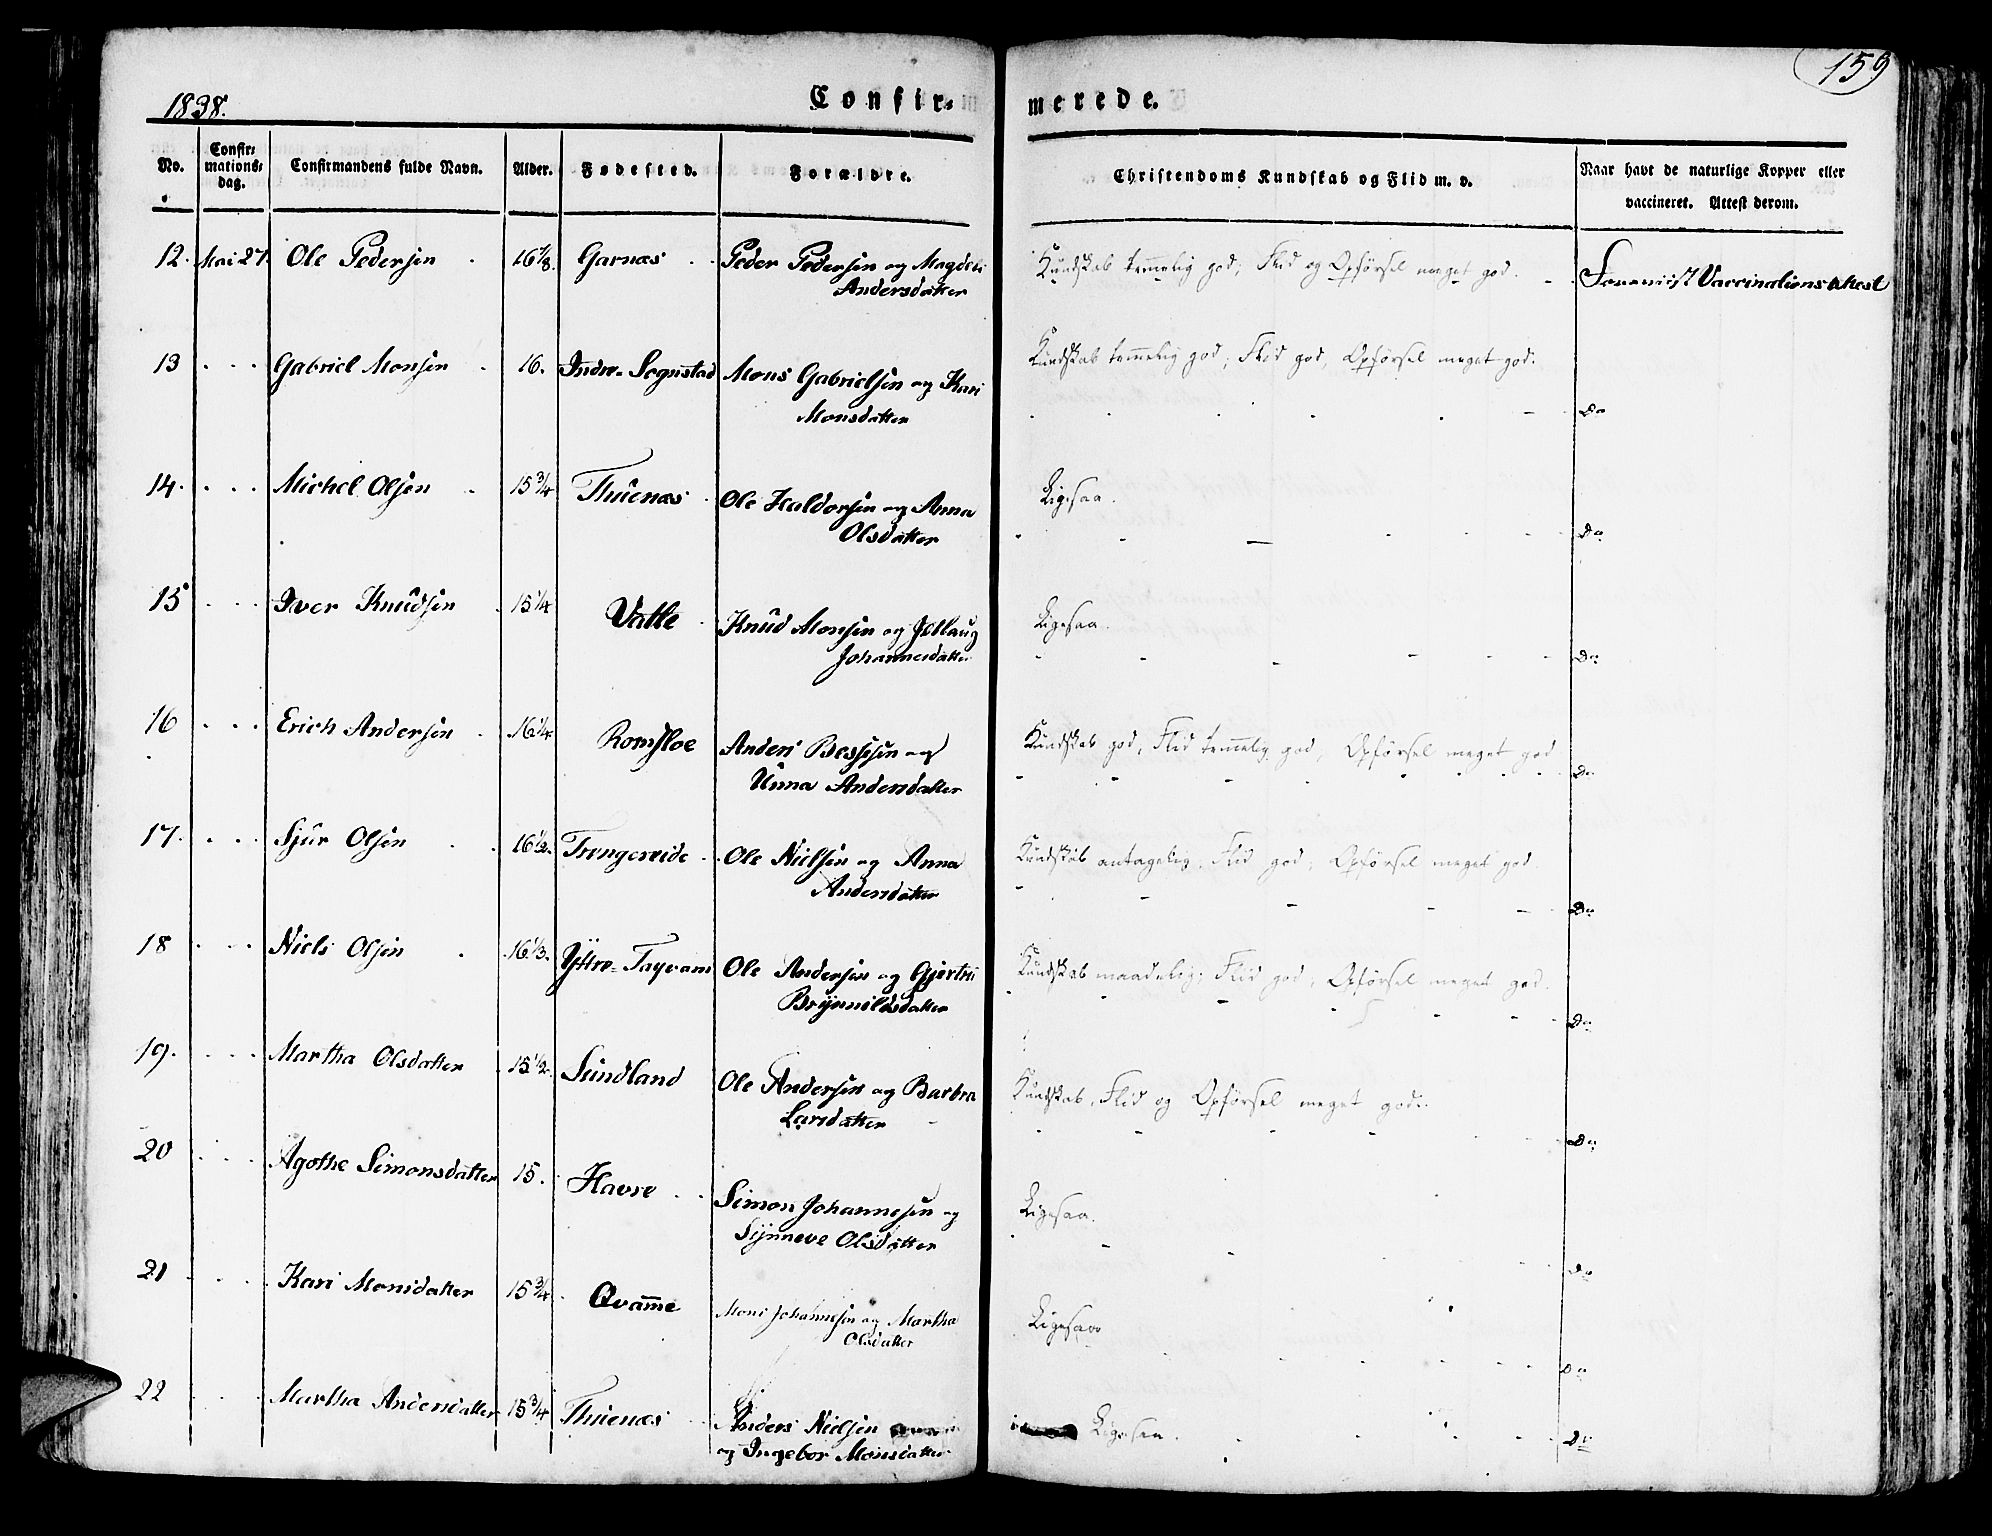 159
1838.
Confir-
merede.
No.
Confir-
mations-
dag.
Confirmandens fulde Navn.
Alder.
Fødested.
Forældre.
Christendoms Kundskab og Flid m. v.
Naar havt de naturlige Kopper eller
vaccineret. Attest derom.
12. Mai 27. Ole Pedersen 16 1/8. Garnæs Peder Pedersen og Magdeli
Andersdatter
Kundskab temmelig god; Flid og Opførsel meget god.
Foreviist Vaccinations Attest
13 Gabriel Monsen 16. Indre-Sognstad Mons Gabrielsen og Kari
Monsdatter
Kundskab temmelig god; Flid god, Opførsel meget god.
Do
14. Michel Olsen 15 3/4 Thuenæs Ole Haldorsen og Anna
Olsdatter
Ligesaa.
Do
15 Iver Knudsen 15 1/4 Valle Knud Monsen og
Johannesdatter
Ligesaa.
Do
16 Erich Andersen 16 1/4. Romsloe Anders Bessesen og
Unna Andersdatter
Kundskab god, Flid temmelig god, Opførsel meget god
Do
17. Sjur Olsen 16 1/2. Trengereide Ole Nielsen og Anna
Andersdatter
Kundskab antagelig, Flid god; Opførsel meget god.
Do
18 Niels Olsen 16 1/3. Yttre- Ole Andersen og Gjertru
Brynnildsdatter
Kundskab maadelig; Flid god; Opførsel meget god.
Do
19. Martha Olsdatter 15 1/2. Sundland Ole Andersen og Barbra
Larsdatter
Kundskab, Flid og Opførsel meget god.
Do
20 Agothe Simonsdatter 15. Havre Simon Johannesen og
Synneve Olsdatter
Ligesaa.
Do
21 Kari Monsdatter 15 3/4. Qvamme Mons Johannesen og Martha
Olsdatter
Ligesaa
Do
22 Martha Andersdatter 15 3/4 Thuenæs Anders Nielsen
og Ingebor Monsdatter
Ligesaa.
Do